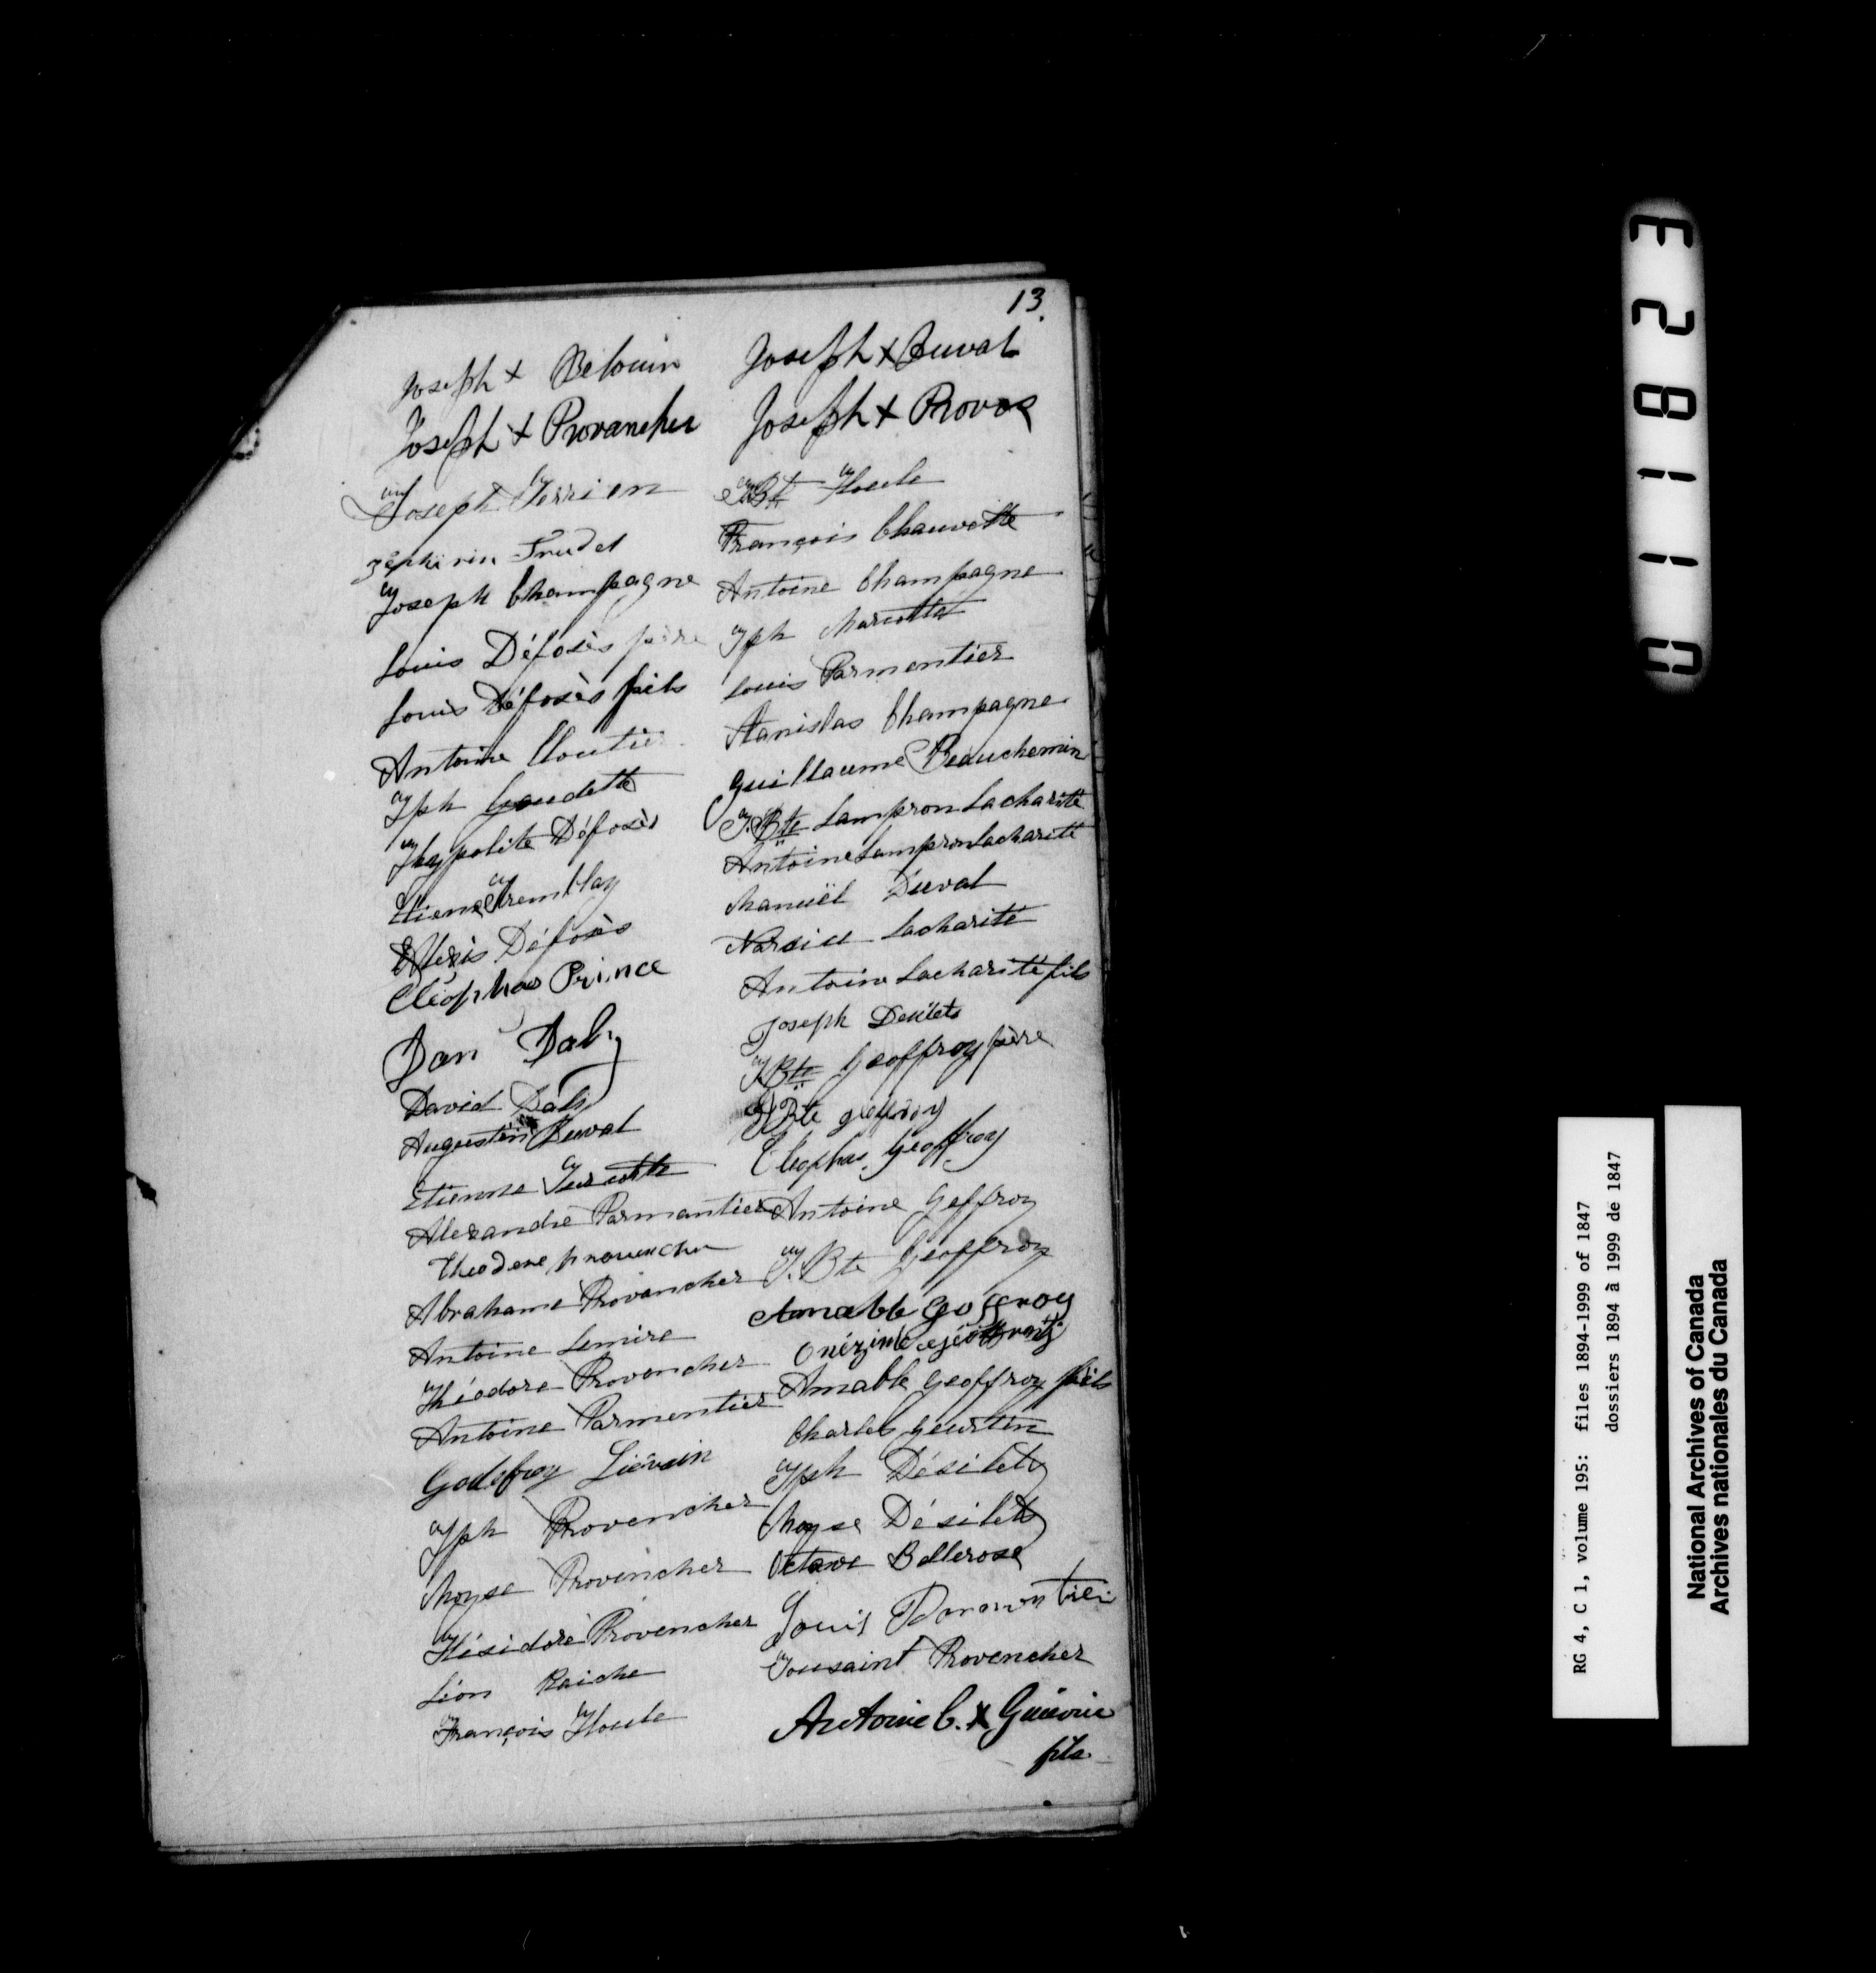 13.
Joseph x Belouin
Joseph x Provancher
Joseph Terrien
zéphirin Trudel
Joseph Champagne
Louis Défosès père
Louis Défosès fils
Antoine Cloutier
Jph Gaudette
Hypolite Défosès
Etiene Tremblay
Alexis Défosès
Cléophas Prince
Dan Daly
David Daly
Augustin Duval
Etienne Turcotte
Alexandre Parmantier
Theodore provencher
Abrahame Provencher
Antoine Lemire
Théodore Provencher
Antoine Parmentier
Godefroy Liévain
Jph Provencher
Moyse Provencher
Hésidore Provencher
Léon Raiche
François Houle
Joseph x Duval
Joseph x Provos
J Bte Houle
François Chauvette
Antoine Champagne
Jph Marcotte
Louis Parmentier
Stanislas Champagne
Guillaume Beauchemin
J. Bte Lampron Lacharité
Antoine Lampron Lacharité
Manuël Duval
Narcisse Lacharité
Antoine Lacharité fils
Joseph Desilets
J. Bte Geoffroy père
J Bte geffroy
Cleophas Geoffroy
Antoine Geffroy
J. Bte Geoffroy
Amable Geoffroy
Onézime géoffroy
Amable Geoffroy fils
Charles
Jph Désilets
Moyse Désilets
Octave Bellerose
Louis Paramontier
Tousaint Provencher
Antoine C. x
fils
0 1 1 8 2 3
RG 4, C 1, volume 195: files 1894-1999 of 1847
dossiers 1894 à 1999 de 1847
National Archives of Canada
Archives nationales du Canada